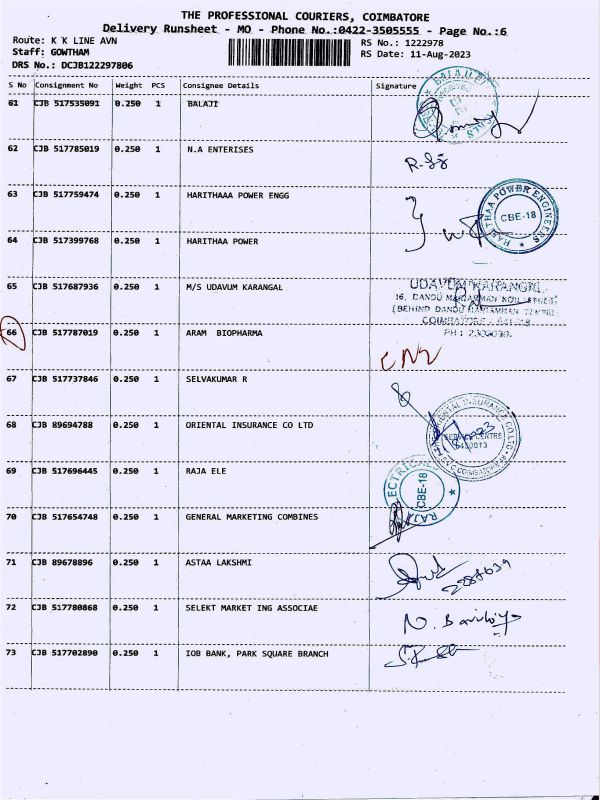 THE PROFESSIONAL COURIERS, COIMBATORE
Delivery Runsheet - MO - Phone No.:0422-3505555 - Page No.:6
Route: K K LINE AVN
RS No.: 1222978
Staff: GOWTHAM
RS Date: 11-Aug-2023
DRS No.: DCJB122297806
S No Consignment No Weight PCS Consignee Details Signature
61 CJB 517535091 0.250 1 BALAJI
62 CJB 517785019 0.250 1 N.A ENTERISES
63 CJB 517759474 0.250 1 HARITHAAA POWER ENGG
HARITHAA POWER ENGINEERS
CBE-18
64 CJB 517399768 0.250 1 HARITHAA POWER
65 CJB 517687936 0.250 1 M/S UDAVUM KARANGAL
UDAVUM KARANGAL
16, DANDU MARIAMMAN KOIL STREET
(BEHIND DANDU MARIAMMAN TEMPLE)
66 CJB 517787019 0.250 1 ARAM BIOPHARMA
67 CJB 517737846 0.250 1 SELVAKUMAR R
68 CJB 89694788 0.250 1 ORIENTAL INSURANCE CO LTD
ORIENTAL INSURANCE CO LTD
SERVICE CENTRE
69 CJB 517696445 0.250 1 RAJA ELE
RAJA ELECTRICALS
CBE-18
70 CJB 517654748 0.250 1 GENERAL MARKETING COMBINES
71 CJB 89678896 0.250 1 ASTAA LAKSHMI
72 CJB 517780868 0.250 1 SELEKT MARKET ING ASSOCIAE
73 CJB 517702890 0.250 1 IOB BANK, PARK SQUARE BRANCH